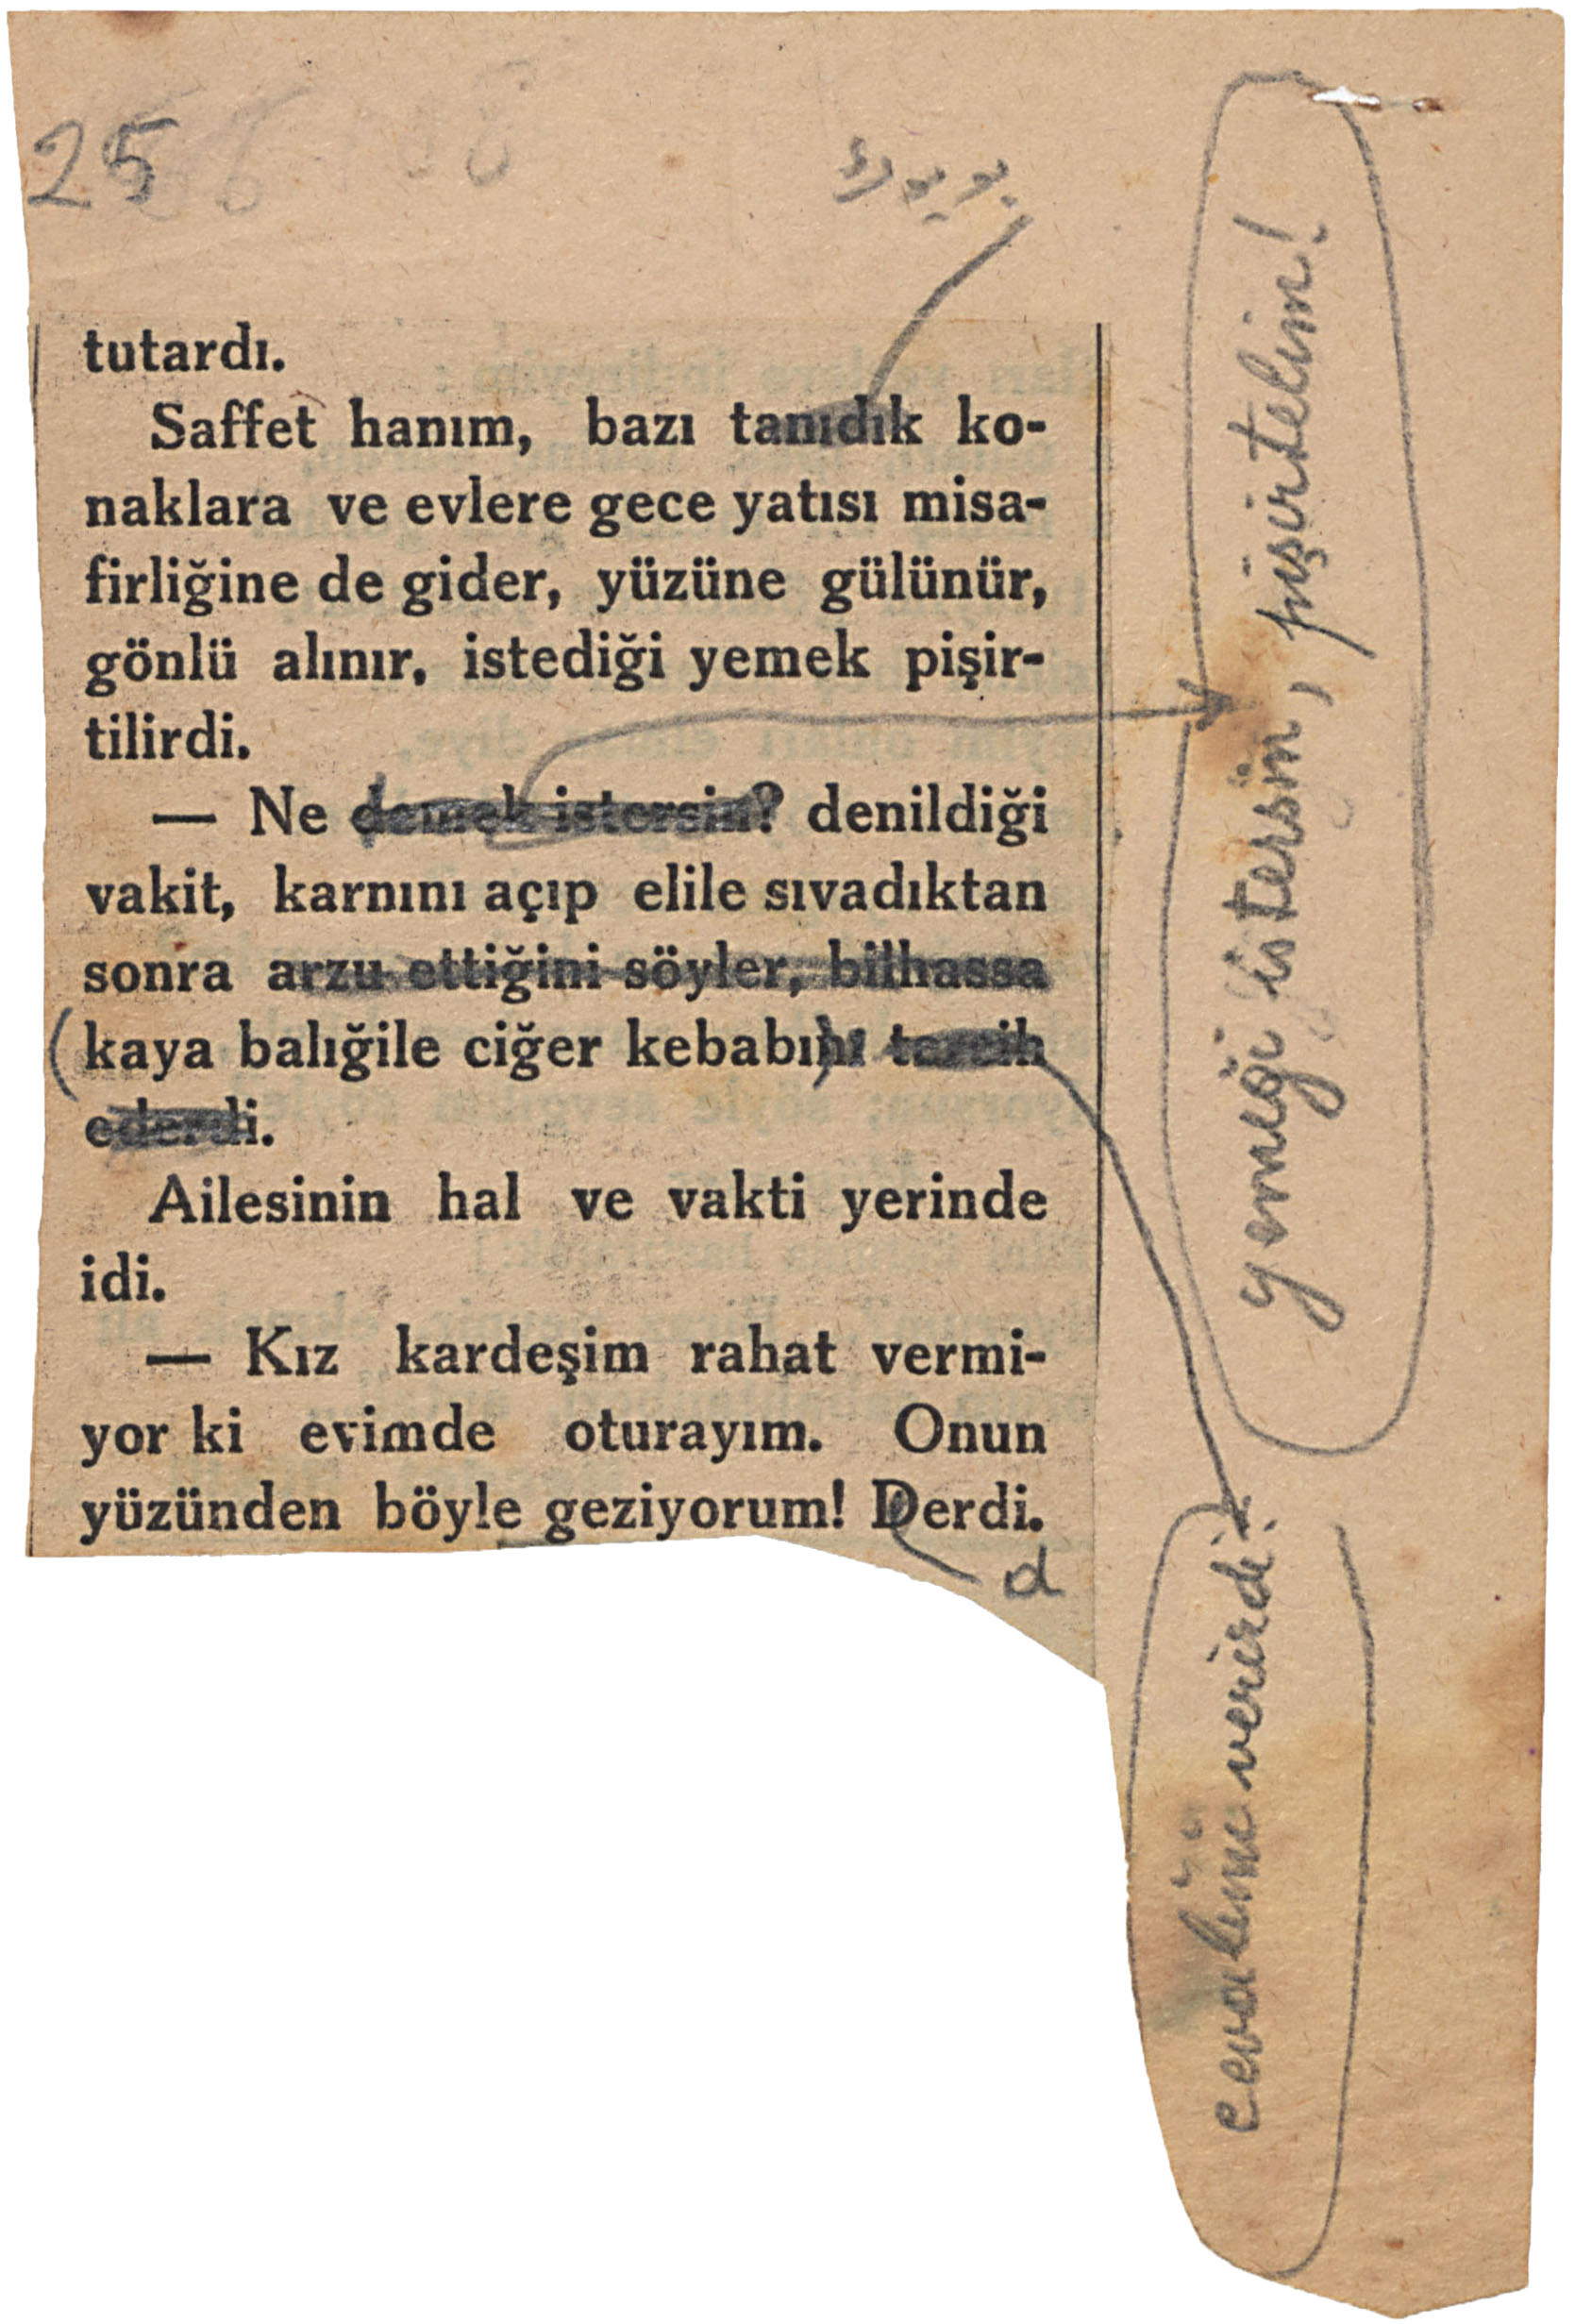 25
tutardı.
Saffet hanım, bazı tanıdık ko-
naklara ve evlere gece yatısı misa-
firliğine de gider, yüzüne gülünür,
gönlü alınır, istediği yemek pişir-
tilirdi.
— Ne demek istersin? denildiği
vakit, karnını açıp elile sıvadıktan
sonra arzu ettiğini söyler, bilhassa
(kaya balığile ciğer kebabını tercih
ederdi.
Ailesinin hal ve vakti yerinde
idi.
— Kız kardeşim rahat vermi-
yor ki evimde oturayım. Onun
yüzünden böyle geziyorum! Derdi.
d
yemeği istersin, pişirtelim!
cevabını verirdi.